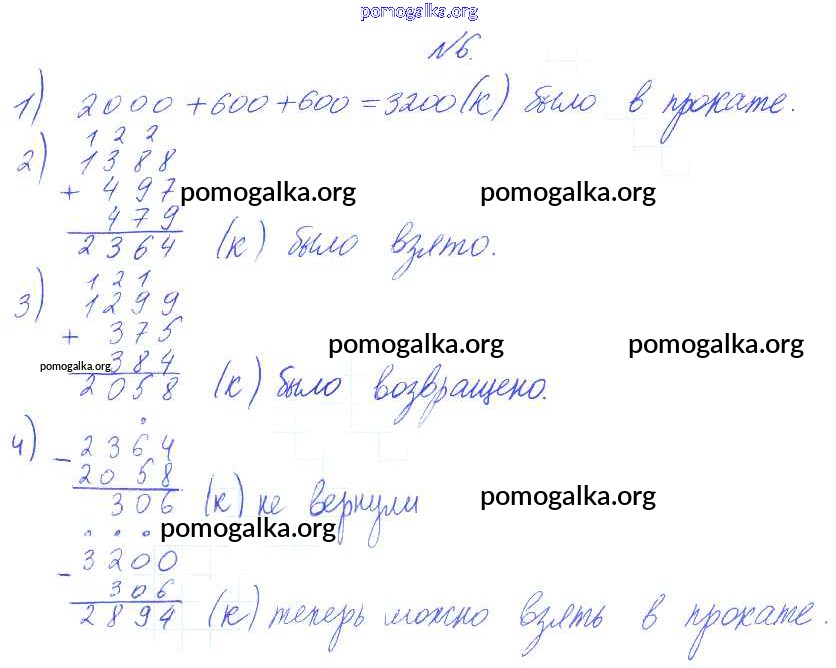 pomogalka.org
№6.
1) 2000 + 600 + 600 = 3200 (к) было в прокате.
1 2 2
2) 1388
+ 497 pomogalka.org pomogalka.org
479
2364 (к) было взято.
1 2 1
3) 1299
+ 375 pomogalka.org pomogalka.org
pomogalka.org 384
2058 (к) было возвращено.
4) - 2364
2058
306 (к) не вернули pomogalka.org
pomogalka.org
- 3200
306
2894 (к) теперь можно взять в прокате.